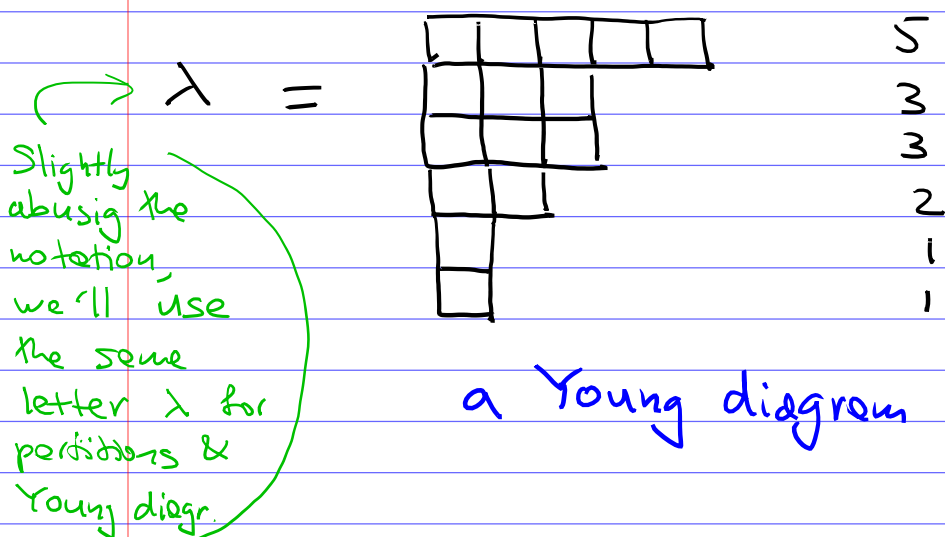 5
λ =
3
3
2
1
1
Slightly
abusig the
notation,
we'll use
the same
letter λ for
partitions &
Young diagr.
a Young diagram